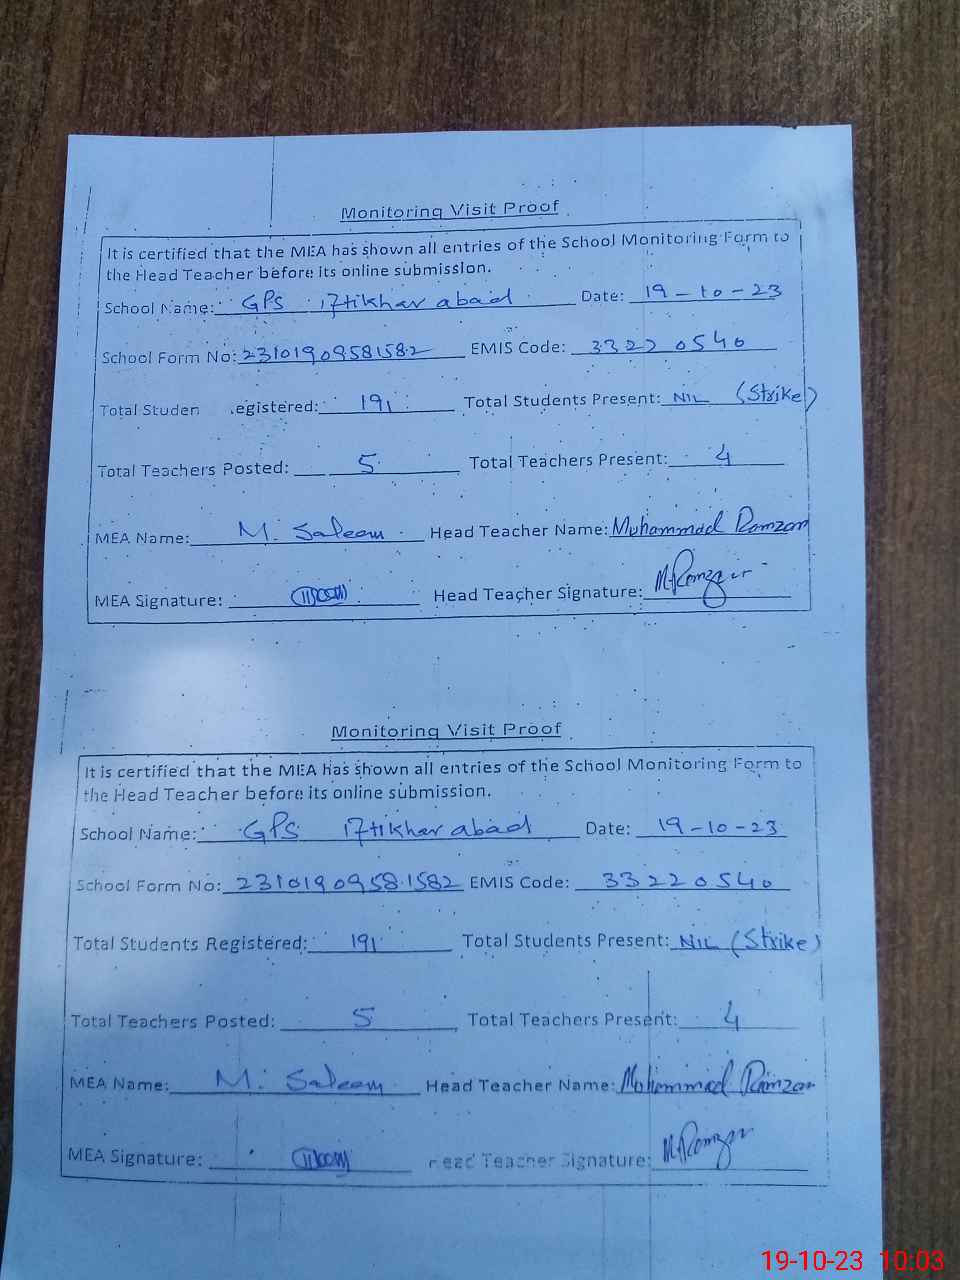 Monitoring Visit Proof
It is certified that the MEA has shown all entries of the School Monitoring Form to
the Head Teacher before its online submission.
School Name: GPS iftikhar abad Date: 19-10-23
School Form No: 23101909581582 EMIS Code: 33220540
Total Studen egistered: 191 Total Students Present: NIL (Strike)
Total Teachers Posted: 5 Total Teachers Present: 4
MEA Name: M. Saleem Head Teacher Name: Muhammad Ramzan
MEA Signature: Head Teacher Signature: M.Ramzan
Monitoring Visit Proof
It is certified that the MEA has shown all entries of the School Monitoring Form to
the Head Teacher before its online submission.
School Name: GPS iftikhar abad Date: 19-10-23
School Form No: 23101909581582 EMIS Code: 33220540
Total Students Registered: 191 Total Students Present: NIL (Strike)
Total Teachers Posted: 5 Total Teachers Present: 4
MEA Name: M. Saleem Head Teacher Name: Muhammad Ramzan
MEA Signature: ead Teacher Signature: M.Ramzan
19-10-23 10:03